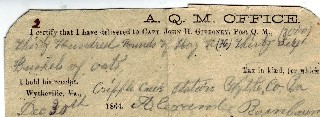 2
A. Q. M. OFFICE.
I certify that I have delivered to CAPT. JOHN H. GIBBONEY, POST Q. M., (3000)
Thirty Hundred Pounds of Hay & (36) Thirty Six
Bushels of oats
Tax in kind, for which
I hold his receipt.
Cripple Creek Station Wythe Co. Va
Wytheville, Va.,
Dec 30th 1864. Alexander